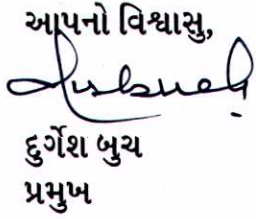 આપનો વિશ્વાસુ,
દુર્ગેશ બુચ
પ્રમુખ